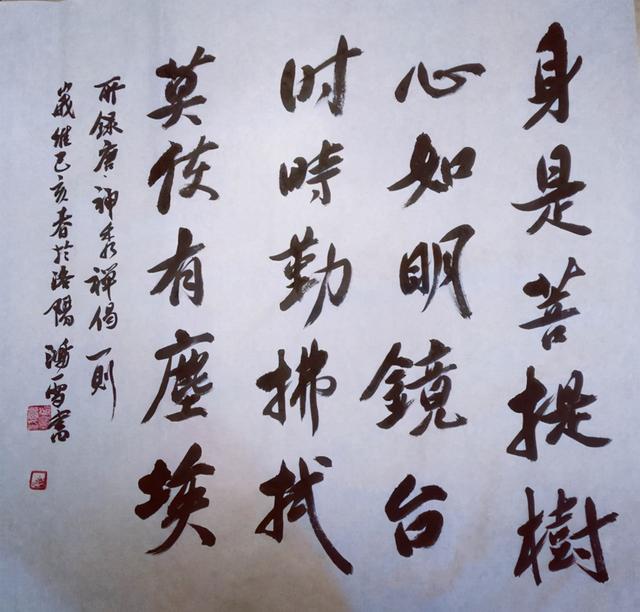 身是菩提樹
心如明鏡台
时時勤拂拭
莫使有塵埃
所録唐神秀禅偈一则
歲維己亥春於洛陽 鴻雪書